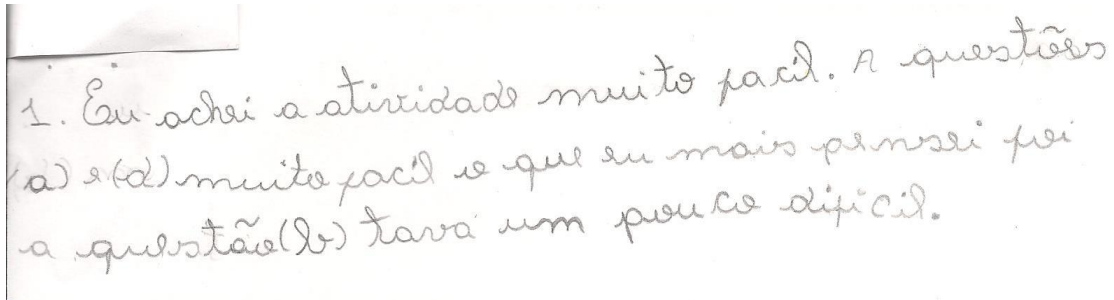 1. Eu achei a atividade muito facil. A questões
(a) e (d) muito facil o que eu mais pensei foi
a questão (b) tava um pouco dificil.